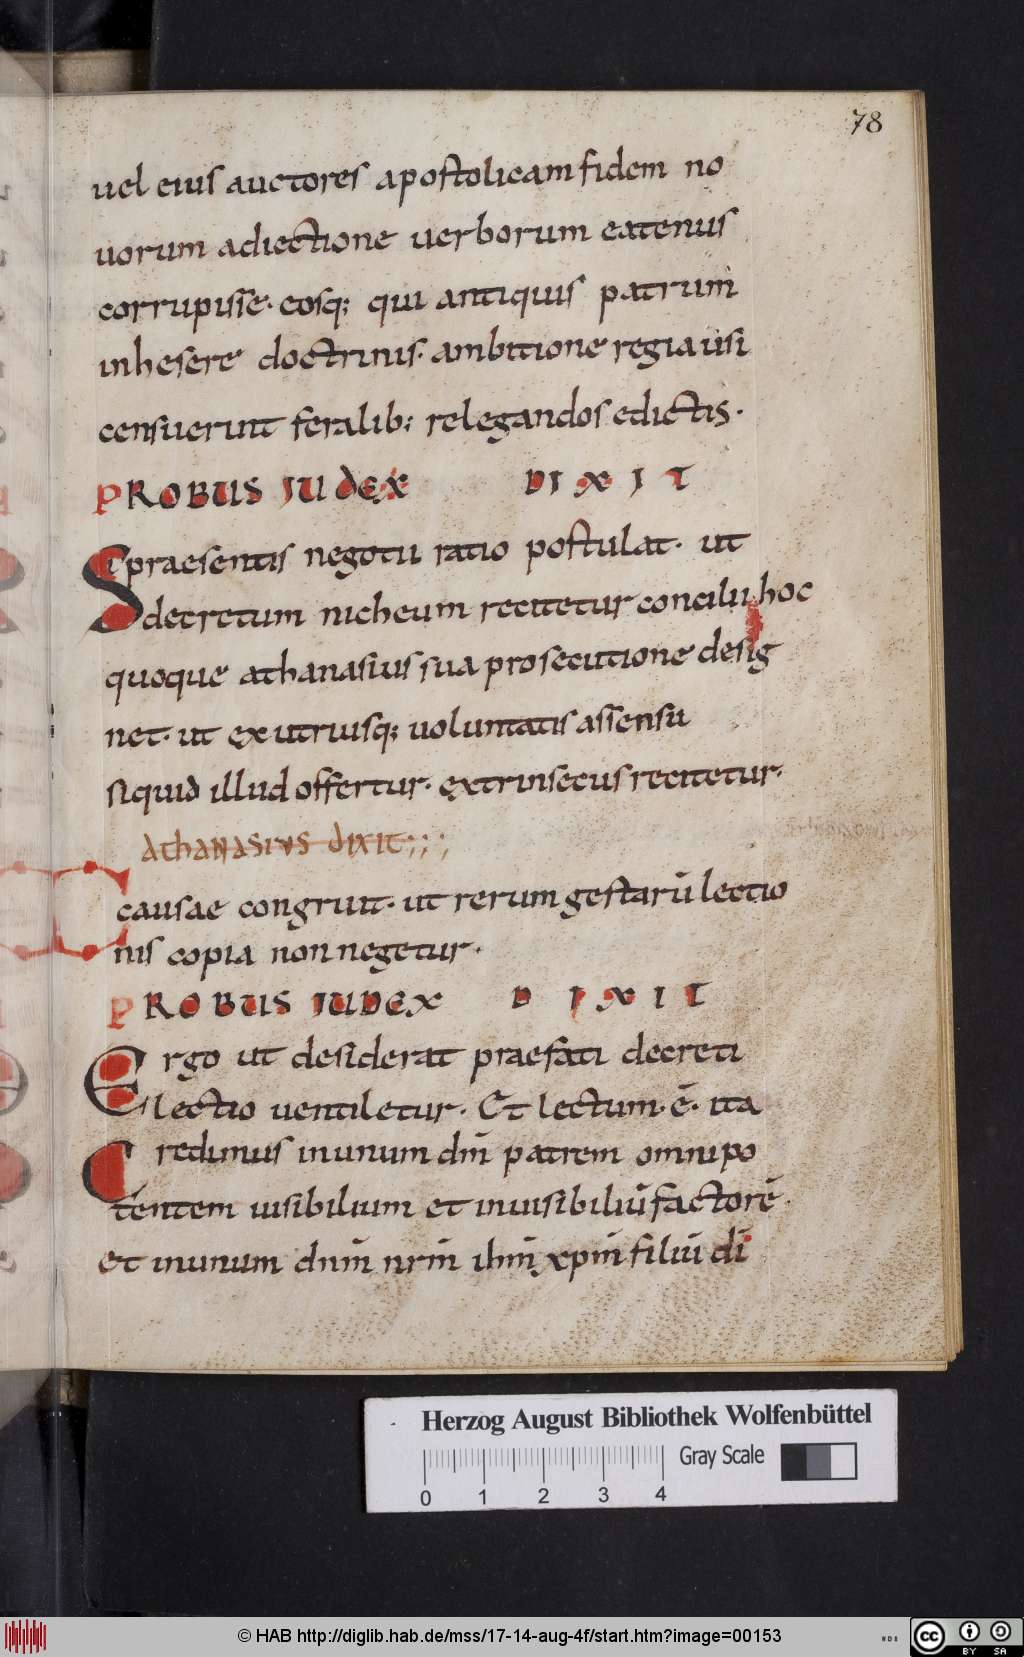 78
uel eius auctores apostolicam fidem no
uorum adiectione uerborum eatenus
corrupisse· eosq; qui antiquis patrum
inhesere doctrinis· ambitione regia usi
censuerunt feralib; relegandos edictis·
PROBUS IUDEX DIXIT
Si praesentis negotii ratio postulat· ut
decretum nicheum recitetur concilii hoc
quoque athanasius sua prosecutione desig
net· ut ex utriusq; uoluntatis assensu
siquid illud offertur· extrinsecus recitetur·
athanasius dixit;;;
causae congruit· ut rerum gestarū lectio
nis copia non negetur·
PROBUS IUDEX DIXIT
Ergo ut desiderat praefati decreti
lectio uentiletur· Et lectum· ē· ita
Credimus inunum dm̄ patrem omnipo
tentem uisibilium et inuisibiliū factorē·
et inunum dnm̄ nrm̄ ihm̄ xpm̄ filiū dī
Herzog August Bibliothek Wolfenbüttel
Gray Scale
0 1 2 3 4
© HAB http://diglib.hab.de/mss/17-14-aug-4f/start.htm?image=00153
WDB
cc BY SA